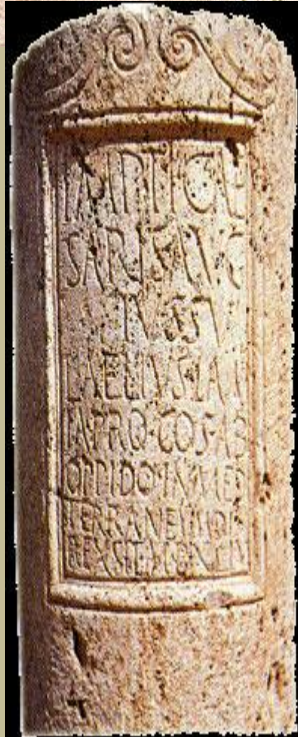 IMP·TI·CAE
SARIS AVG
IVSSV
L AELIVS LAM
IA PRO·COS·AB
OPPIDO·IN MED
ITERRANEVM DI
REXSIT